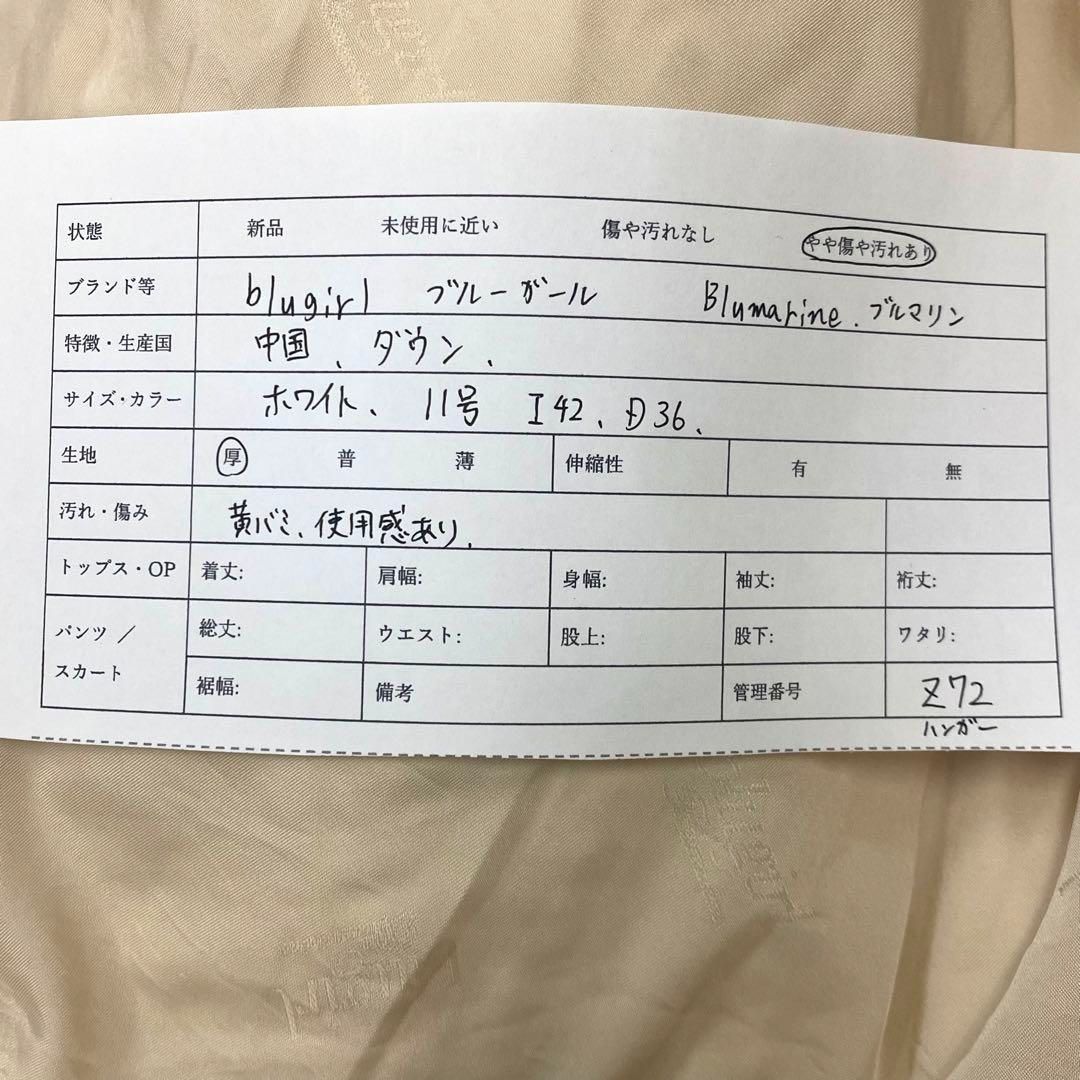 状態 新品 未使用に近い 傷や汚れなし やや傷や汚れあり
ブランド等 blugirl ブルーガール Blumarine、ブルマリン
特徴・生産国 中国、ダウン、
サイズ・カラー ホワイト、11号 I42、D36、
生地 厚 普 薄 伸縮性 有 無
汚れ・傷み 黄バミ、使用感あり、
トップス・OP 着丈: 肩幅: 身幅: 袖丈: 裄丈:
パンツ / 総丈: ウエスト: 股上: 股下: ワタリ:
スカート 裾幅: 備考 管理番号 Z72
ハンガー